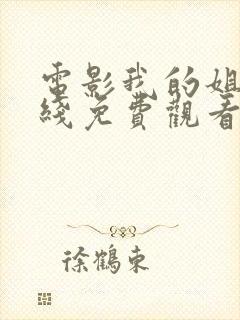 電影我的姐
綫免費觀看
徐鶴東